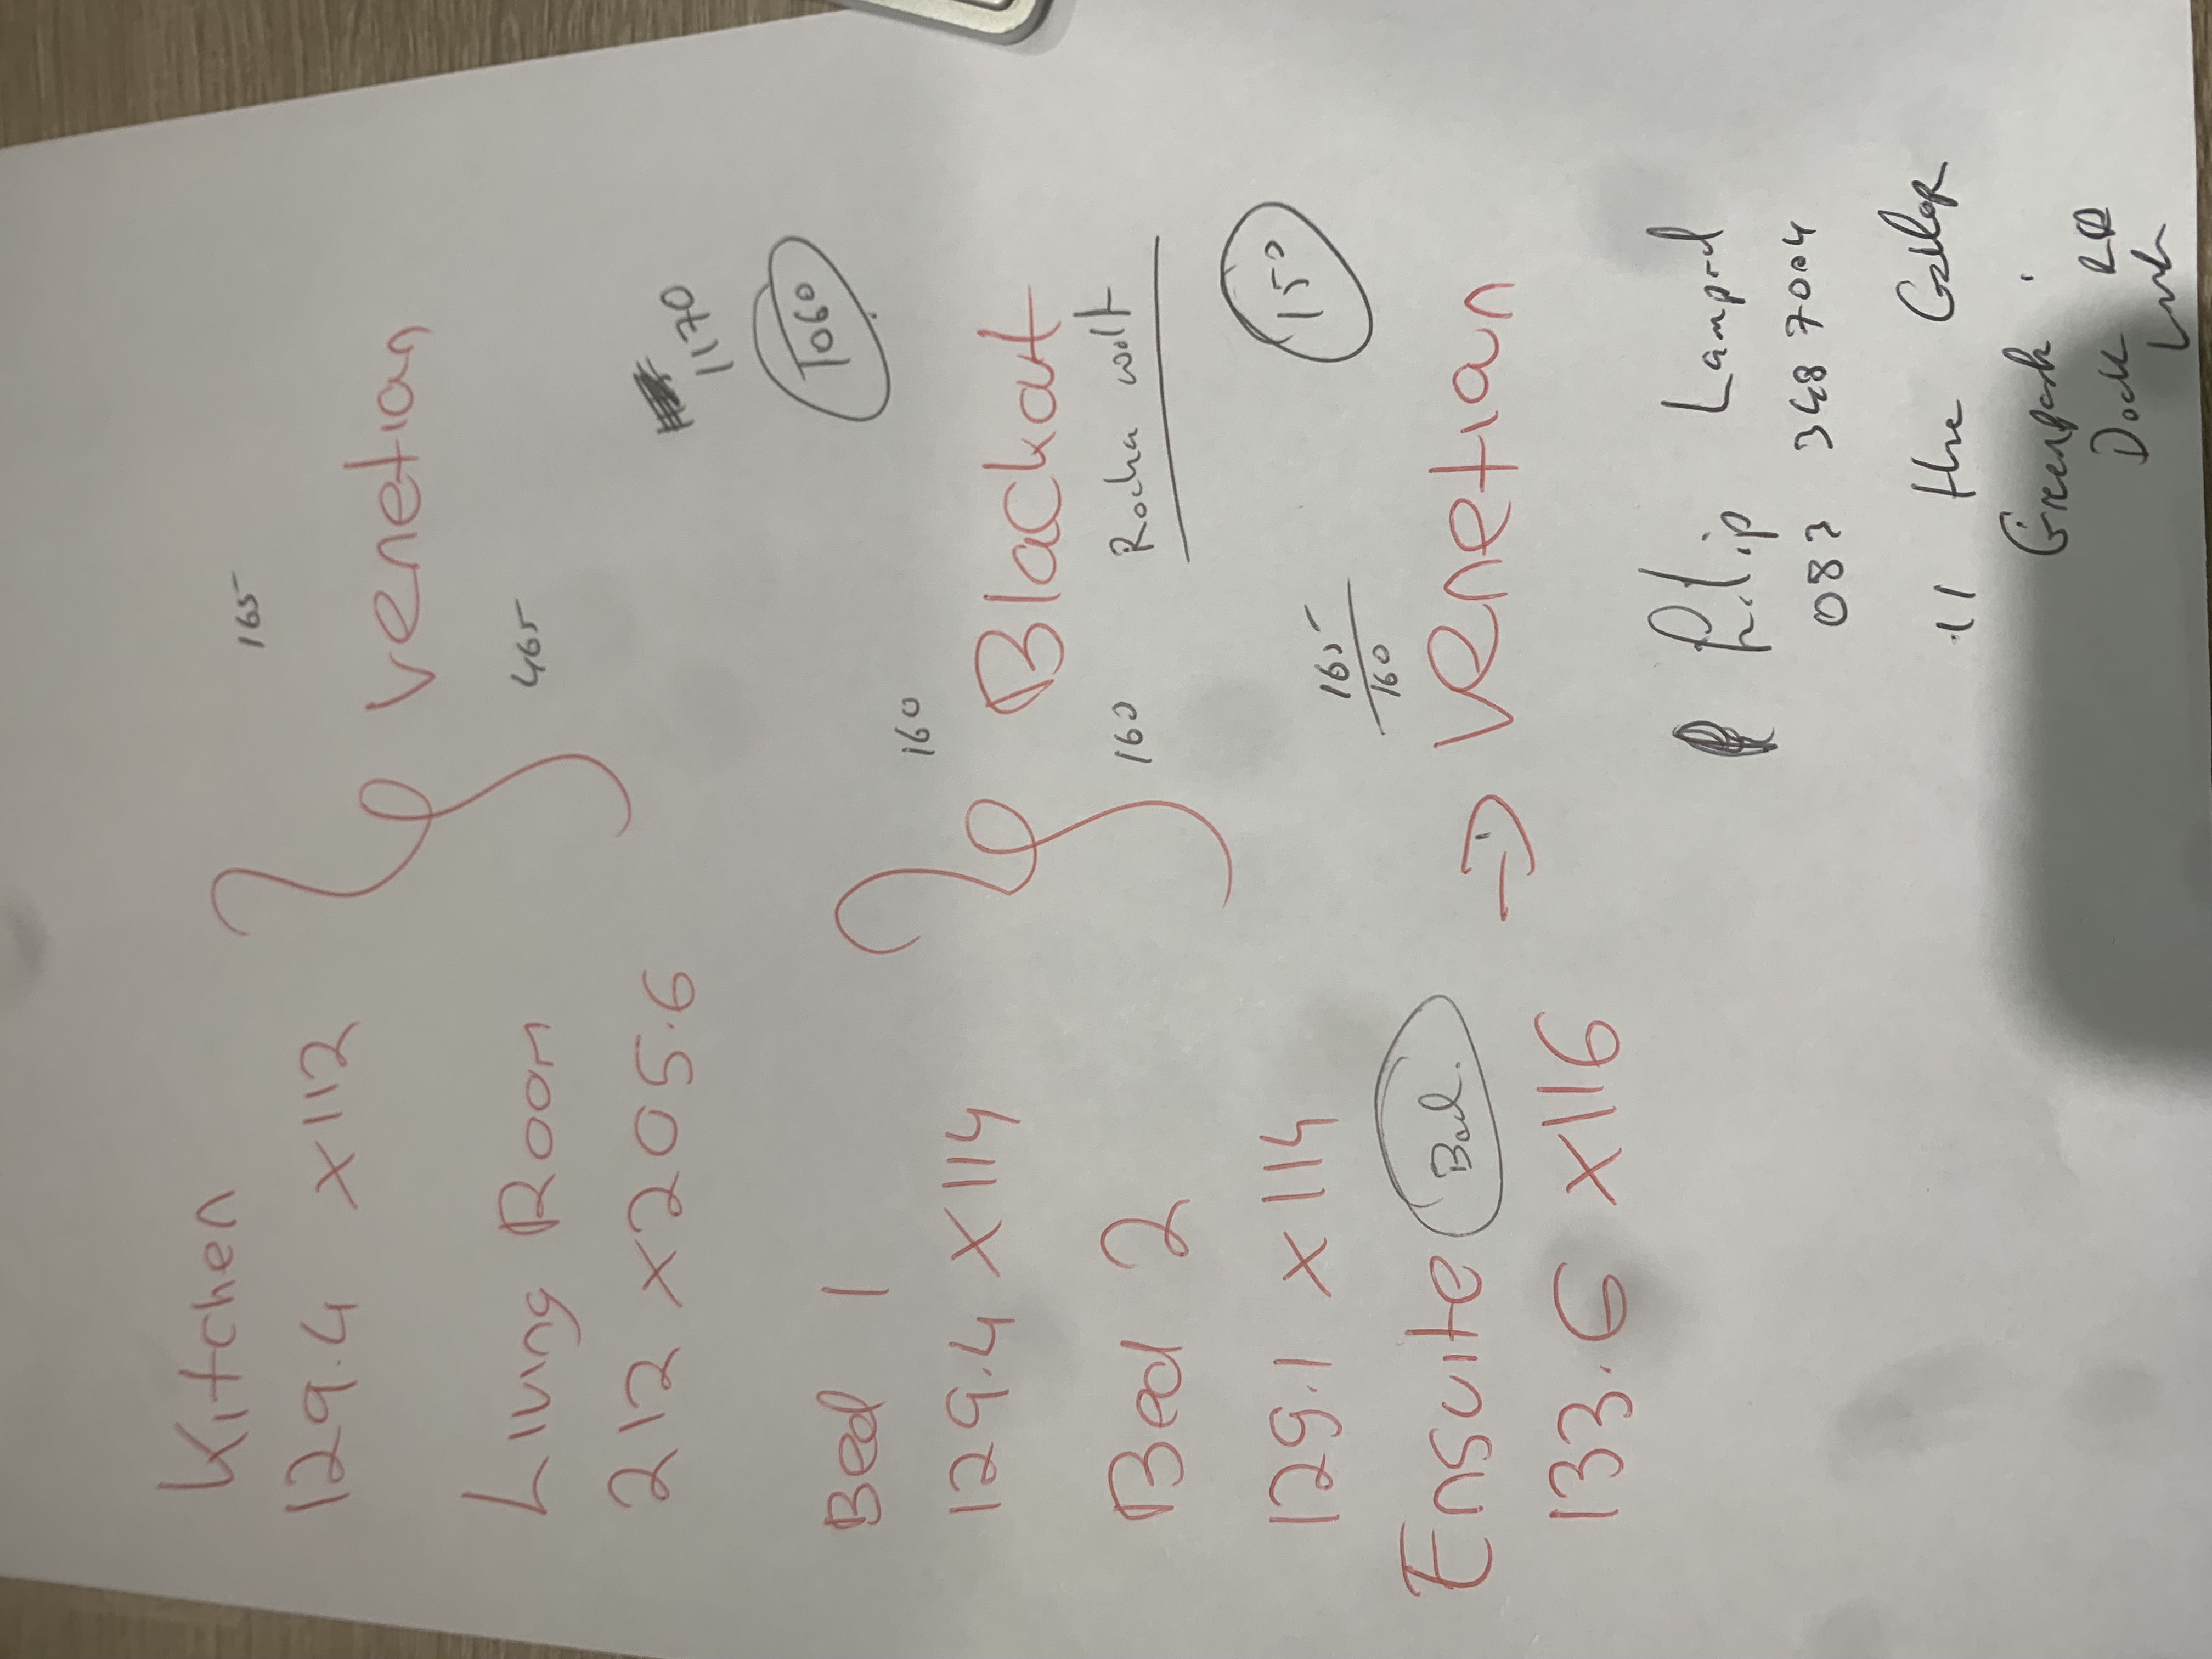 Kitchen
129.4 x112
165
venetian
Living Room
465
212 x205.6
1170
1060
Bed 1
129.4 x114
160
Blackout
Rocha
Bed 2
160
129.1 x114
150
165
160
Ensuite
133.6 x116
→ venetian
Philip
083 348 7004
11 the
Greenpark
Dock RD